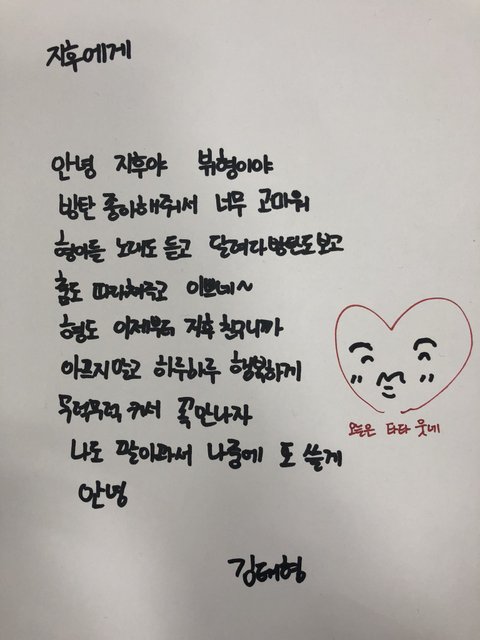 지후에게
안녕 지후야 뷔형이야
방탄 좋아해줘서 너무 고마워
형아들 노래도 듣고 달려라방탄도보고
춤도 따라춰주고 이쁘네~
형도 이제부터 지후친구니까
아프지말고 하루하루 행복하게
무럭무럭 커서 꼭만나자
나도 팔아파서 나중에 또 쓸게
안녕
오늘은 타타 웃네
김태형